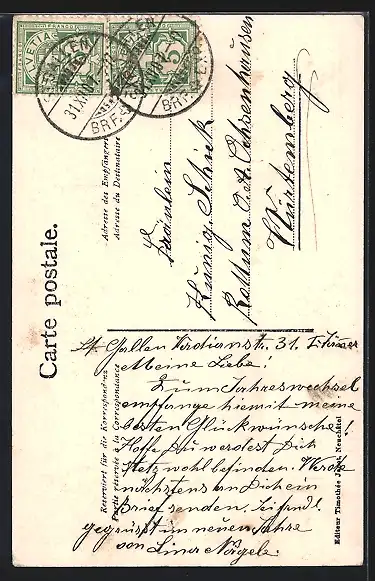 HELVETIA
FRANCO
HELVETIA
FRANCO
5
31.XII.07
BRF.
ST. GALLEN
BRF.
Carte postale.
Adresse des Empfängers
Adresse du Destinataire
Fräulein
Kunig. Schick
Rottum O.A. Ochsenhausen
Würtemberg
Reserviert für die Korrespondenz
Partie réservée à la Correspondance
St. Gallen 31.
Meine Liebe!
Zum Jahreswechsel
empfange hiemit meine
besten Glückwünsche!
Hoffe Du werdest Dich
stetz wohl befinden. Werde
nächstens an Dich ein
Brief senden. Sei frdl.
gegrüsst im neuen Jahre
von Lina Nägele.
Editeur Timothée Jacot, Neuchâtel